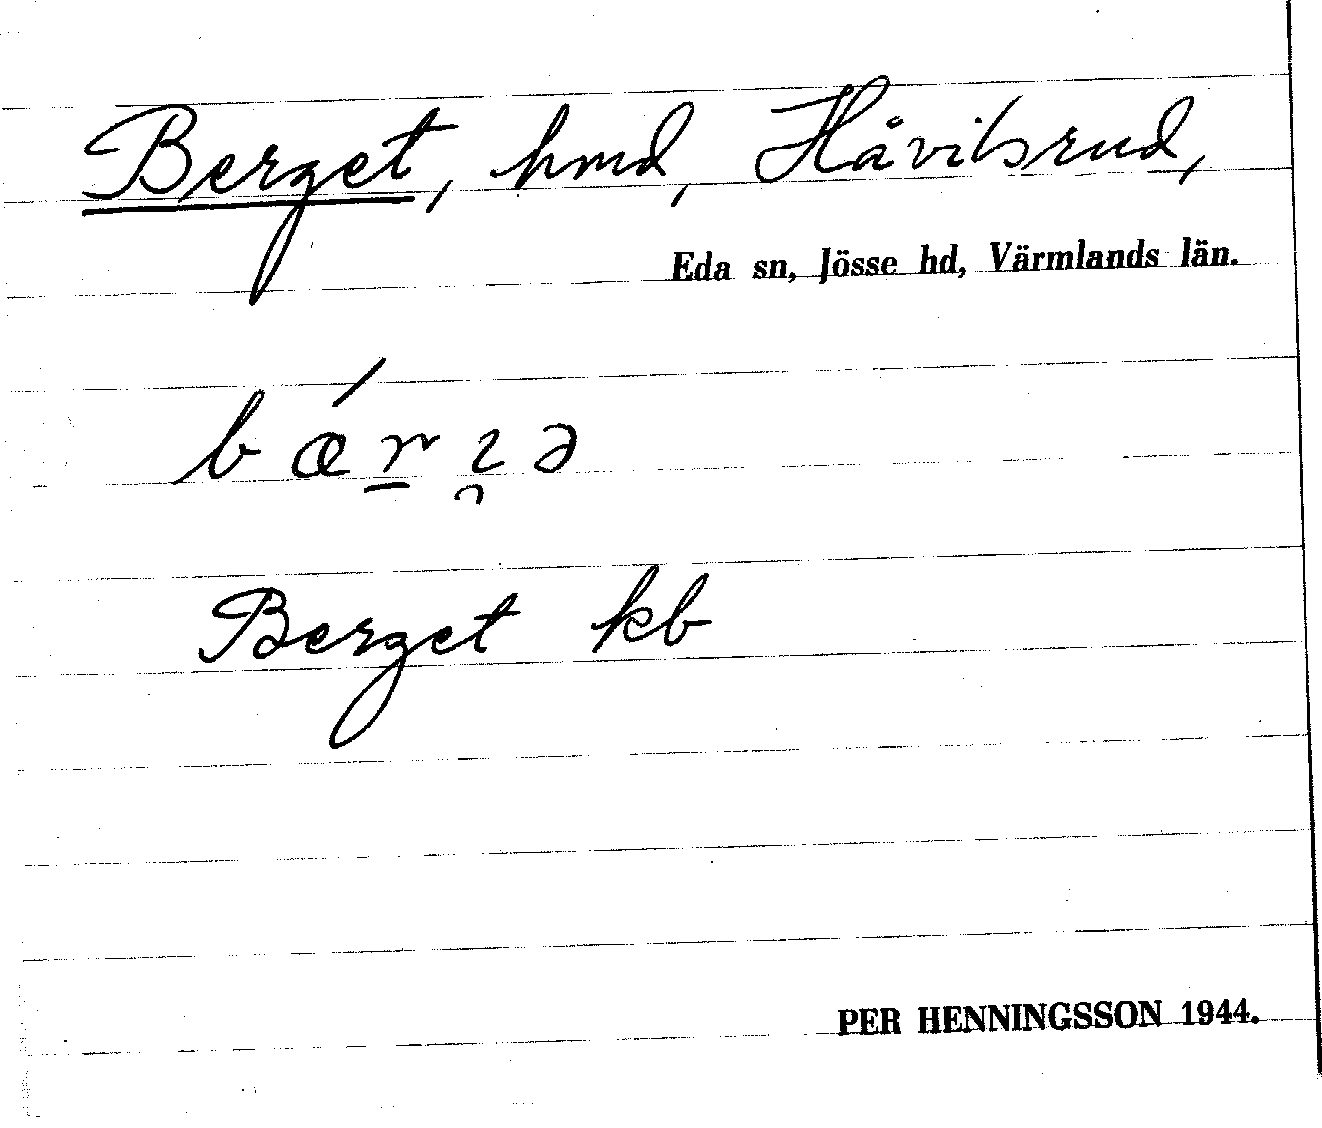 Berget, hmd, Håvilsrud,
Eda sn, Jösse hd, Värmlands län.
Berget kb
PER HENNINGSSON 1944.